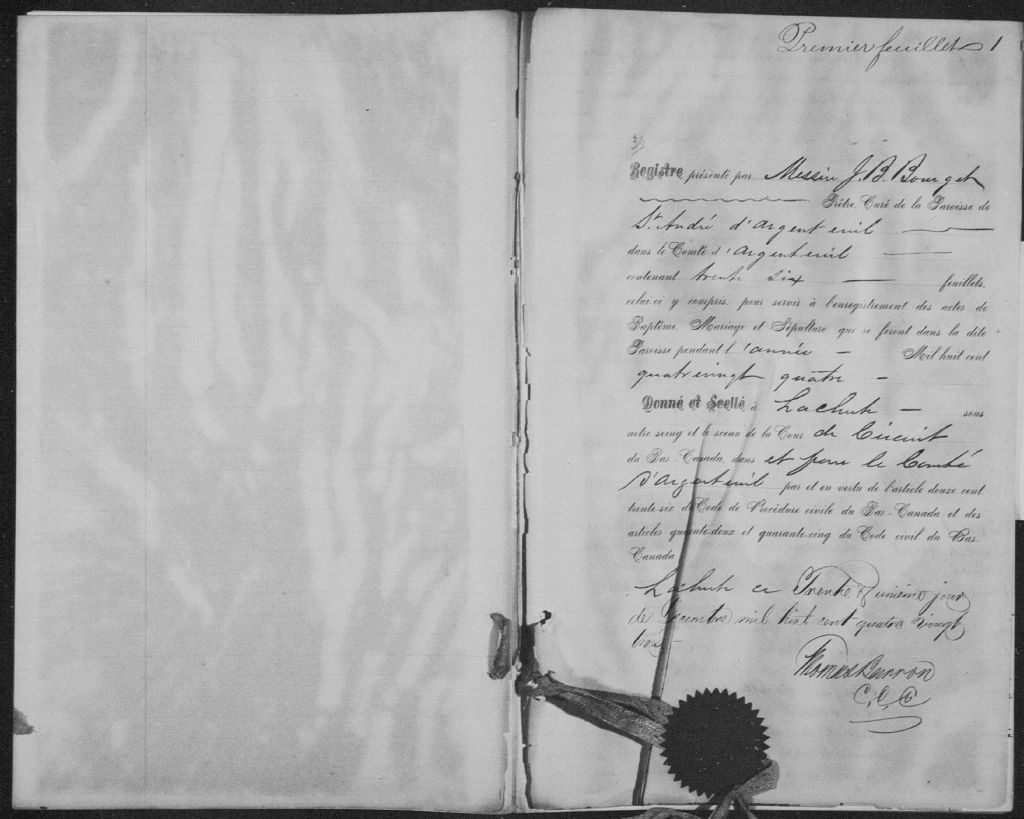 Premier feuillet 1
Registre présenté par Messire J. B. Bourget
Prêtre, Curé de la Paroisse de
St. André d'Argenteuil
dans le Comté d'Argenteuil
contenant trente six feuillets,
celui-ci y compris, pour servir à l'enregistrement des actes de
Baptême, Mariage et Sépulture qui se feront dans la dite
Paroisse pendant l'année Mil huit cent
quatrevingt quatre
Donné et Scellé à Lachute sous
notre seing et le sceau de la Cour de Circuit
du Bas-Canada, dans et pour le Comté
d'Argenteuil par et en vertu de l'article douze cent
trente-six du Code de Procédure civile du Bas-Canada et des
articles quarante-deux et quarante-cinq du Code civil du Bas-
Canada
Lachute ce Trente & unième jour
de Décembre mil huit cent quatre vingt
trois
Thomas Barron
C. C. C.